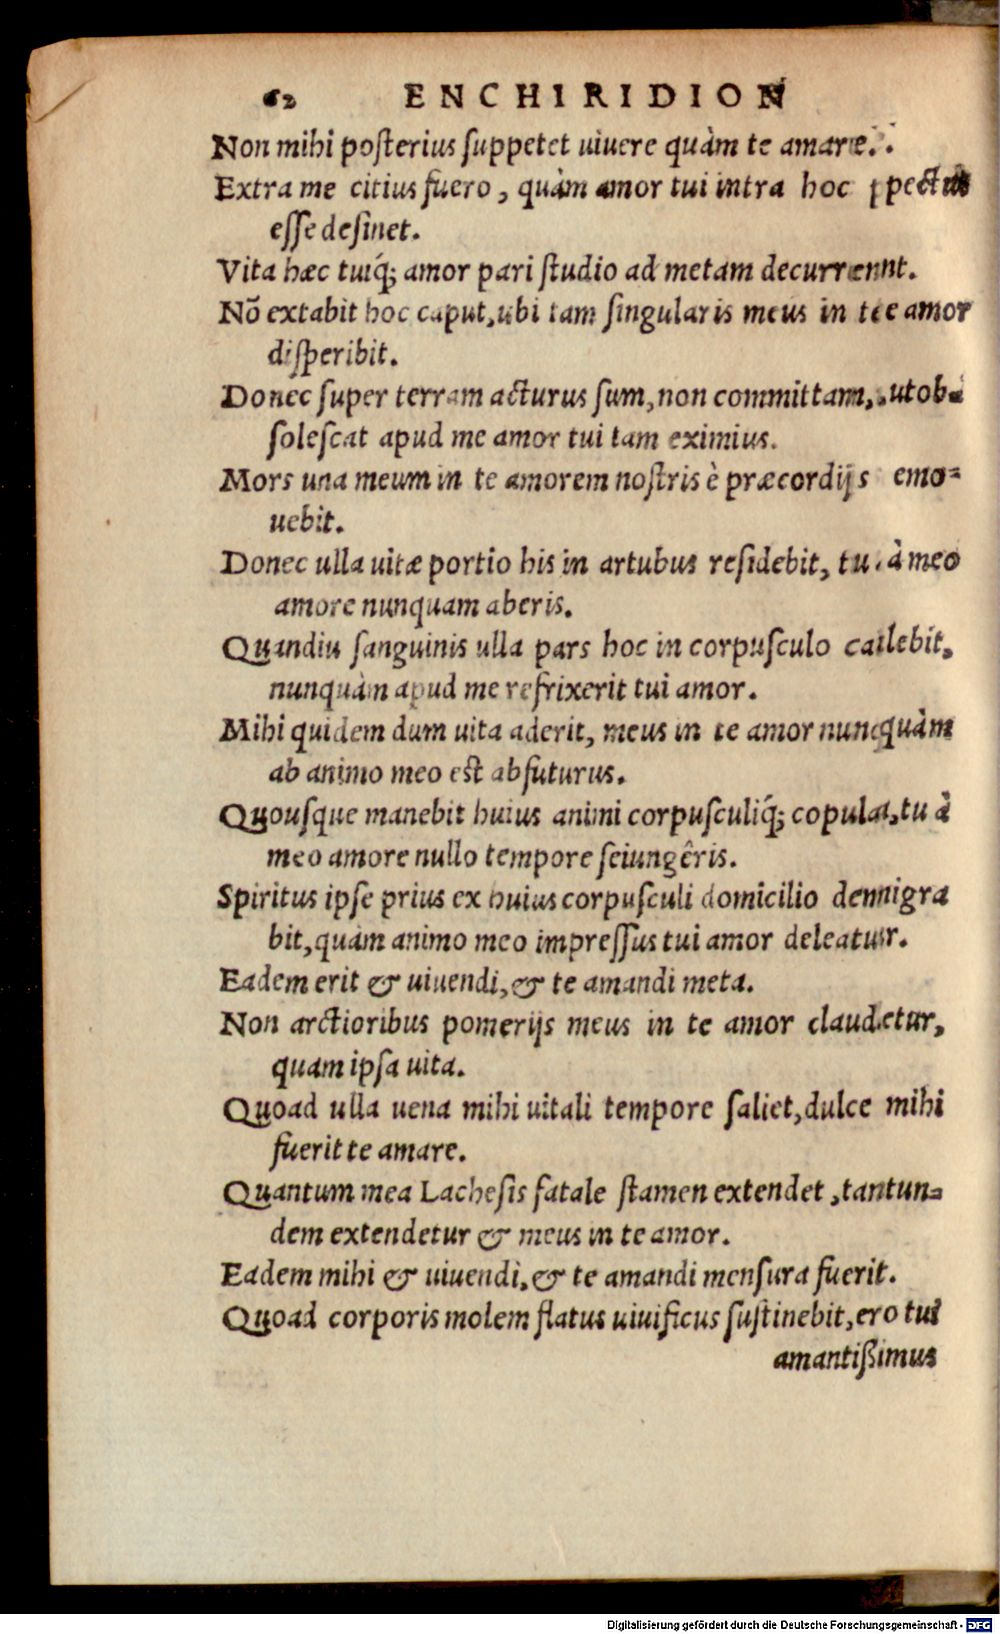 62 ENCHIRIDION
Non mihi poſterius ſuppetet uiuere quàm te amare.
Extra me citius fuero, quàm amor tui intra hoc pectus
eſſe deſinet.
Vita hæc tuiq́; amor pari ſtudio ad metam decurrent.
Nõ extabit hoc caput, ubi tam ſingularis meus in te amor
diſperibit.
Donec ſuper terram acturus ſum, non committam, ut ob-
ſoleſcat apud me amor tui tam eximius.
Mors una meum in te amorem noſtris è præcordijs emo-
uebit.
Donec ulla uitæ portio his in artubus reſidebit, tu à meo
amore nunquam aberis.
Quandiu ſanguinis ulla pars hoc in corpuſculo calebit,
nunquàm apud me refrixerit tui amor.
Mihi quidem dum uita aderit, meus in te amor nunquàm
ab animo meo est abfuturus.
Quouſque manebit huius animi corpuſculiq́; copula, tu à
meo amore nullo tempore ſeiungêris.
Spiritus ipſe prius ex huius corpuſculi domicilio demigra
bit, quàm animo meo impreſſus tui amor deleatur.
Eadem erit & uiuendi, & te amandi meta.
Non arctioribus pomerijs meus in te amor claudetur,
quam ipſa uita.
Quoad ulla uena mihi uitali tempore ſaliet, dulce mihi
fuerit te amare.
Quantum mea Lacheſis fatale ſtamen extendet, tantun-
dem extendetur & meus in te amor.
Eadem mihi & uiuendi, & te amandi menſura fuerit.
Quoad corporis molem flatus uiuificus ſuſtinebit, ero tui
amantißimus
Digitalisierung gefördert durch die Deutsche Forschungsgemeinschaft - DFG